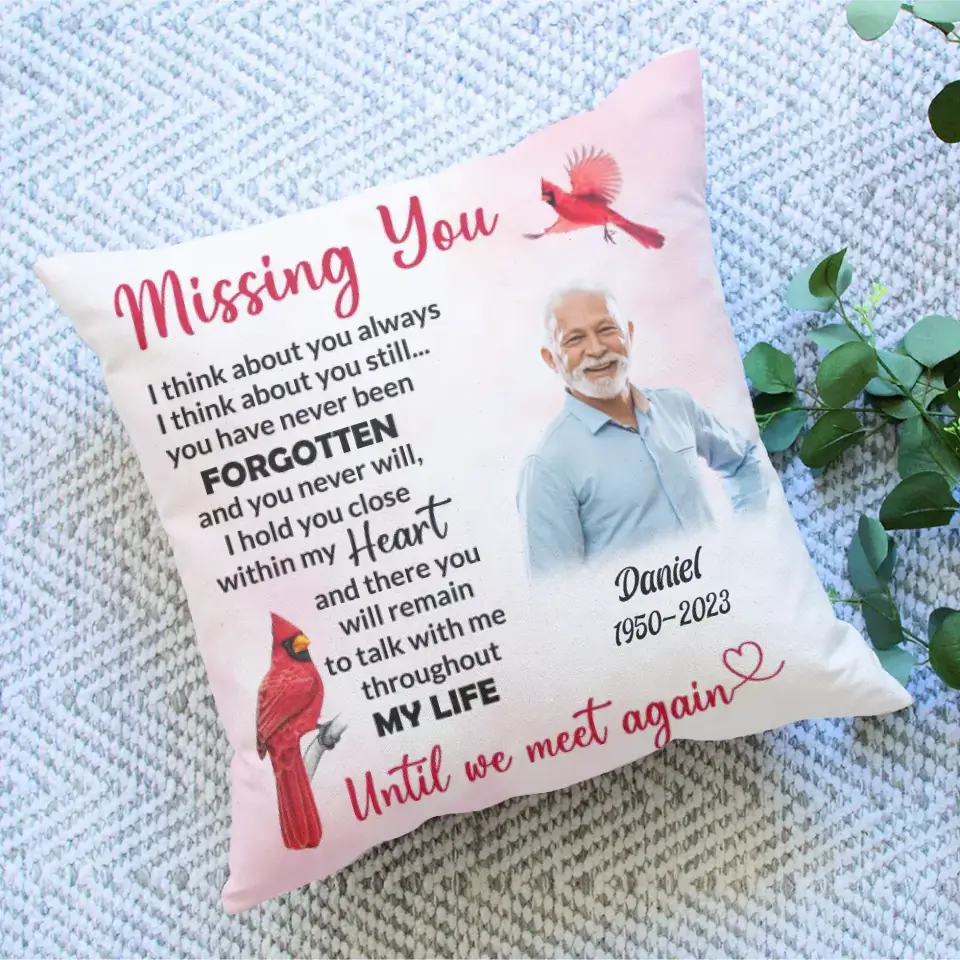 Missing You
I think about you always
I think about you still...
you have never been
FORGOTTEN
and you never will,
I hold you close
within my Heart
and there you
will remain
to talk with me
throughout
MY LIFE
Daniel
1950-2023
Until we meet again